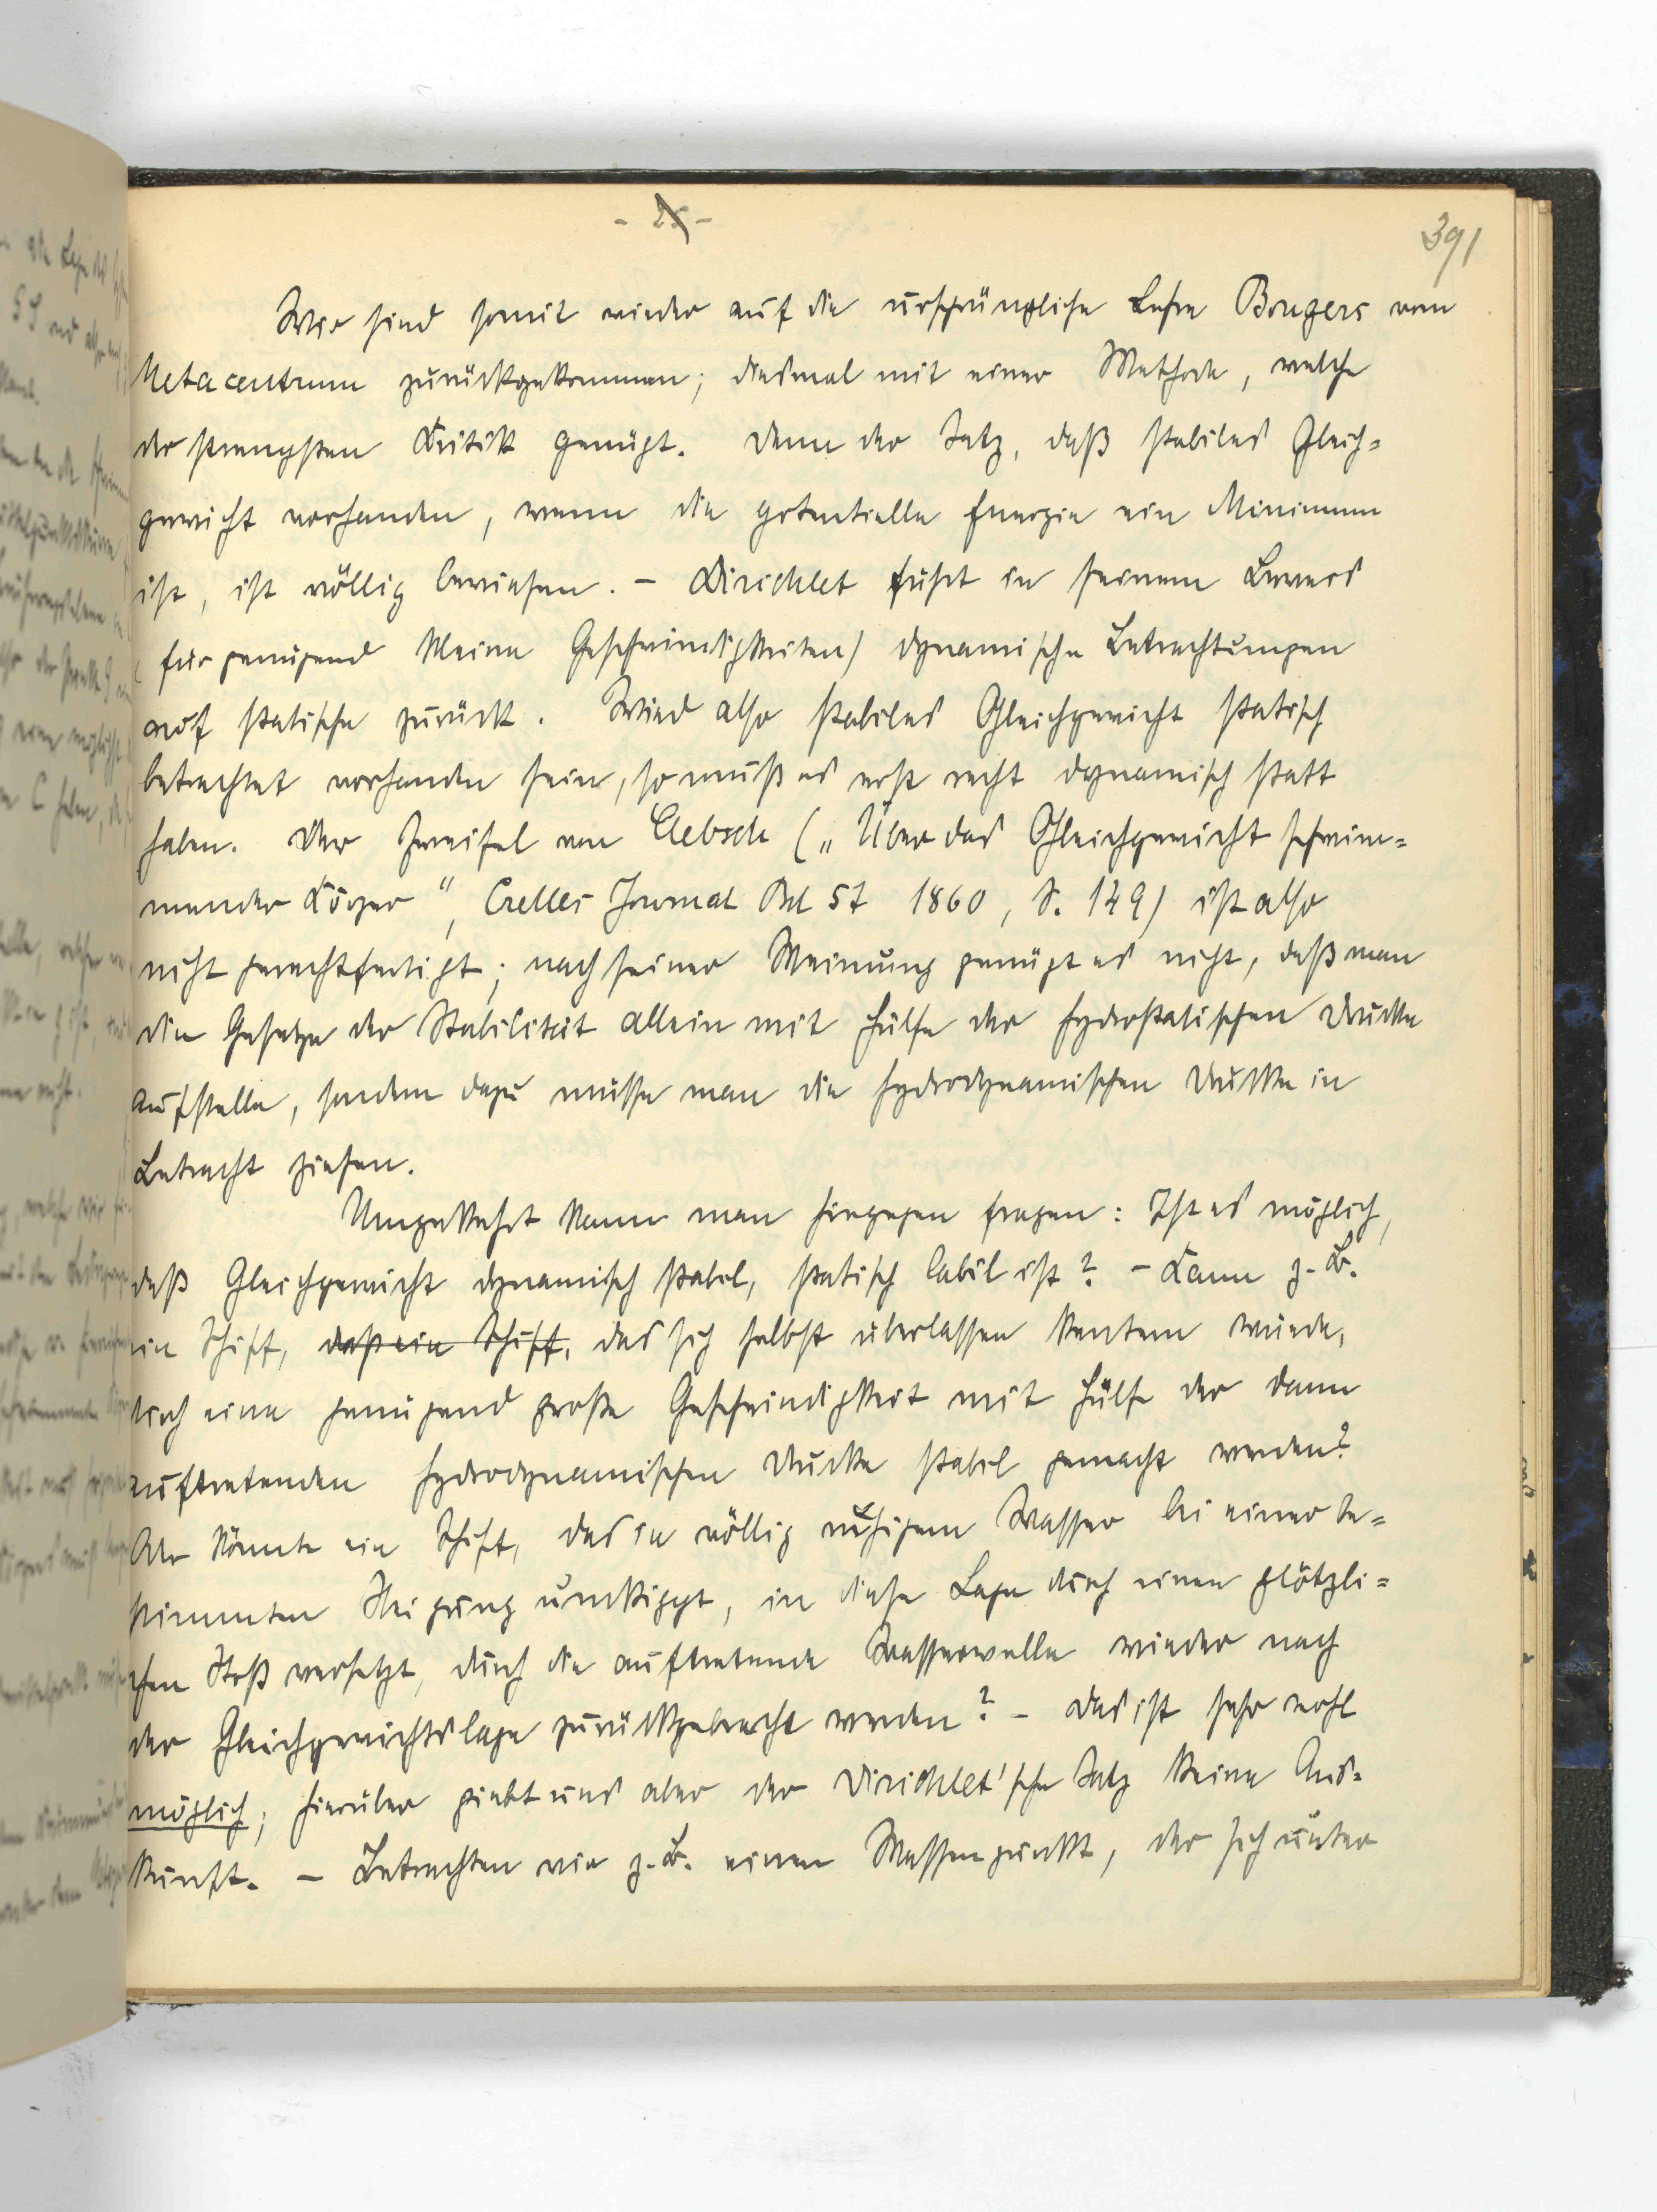 391
Wir sind somit wieder auf die ursprüngliche Lehre Bougers vom
Metacentrum zurückgekommen; diesmal mit einer Methode, welche
der strengsten Kritik genügt. Denn der Satz, daß stabiles Gleich=
gewicht vorhanden, wenn die potentielle Energie ein Minimum
ist, ist völlig bewiesen. – Dirichlet führt in seinem Beweis
(für genügend kleine Geschwindigkeiten) dynamische Betrachtungen
auf statische zurück. Wird also stabiles Gleichgewicht statisch
betrachtet vorhanden sein, so muß es erst recht dynamisch statt
haben. Der Zweifel von Clebsch („Über das Gleichgewicht schwim=
mender Körper“, Crelles Journal Bd 57 1860, S. 149) ist also
nicht gerechtfertigt; nach seiner Meinung genügt es nicht, daß man
die Gesetze der Stabilität allein mit Hülfe der hydrostatischen Drucke
aufstelle, sondern dazu müsse man die hydrodynamischen Drucke in
Betracht ziehen.
Umgekehrt kann man hingegen fragen: Ist es möglich,
daß Gleichgewicht dynamisch stabil, statisch labil ist? – Kann z. B.
ein Schiff, daß ein Schiff, das sich selbst überlassen kentern würde,
durch eine genügend große Geschwindigkeit mit Hülfe der dann
auftretenden hydrodynamischen Drucke stabil gemacht werden?
Oder könnte ein Schiff, das in völlig ruhigem Wasser bei einer be=
stimmten Neigung umkippt, in diese Lage durch einen plötzli=
chen Stoß versetzt, durch die auftretende Wasserwelle wieder nach
der Gleichgewichtslage zurückgebracht werden? – Das ist sehr wohl
möglich; hierüber giebt uns aber der Dirichlet'sche Satz keine Aus=
kunft. – Betrachten wir z. B. einen Massenpunkt, der sich unter